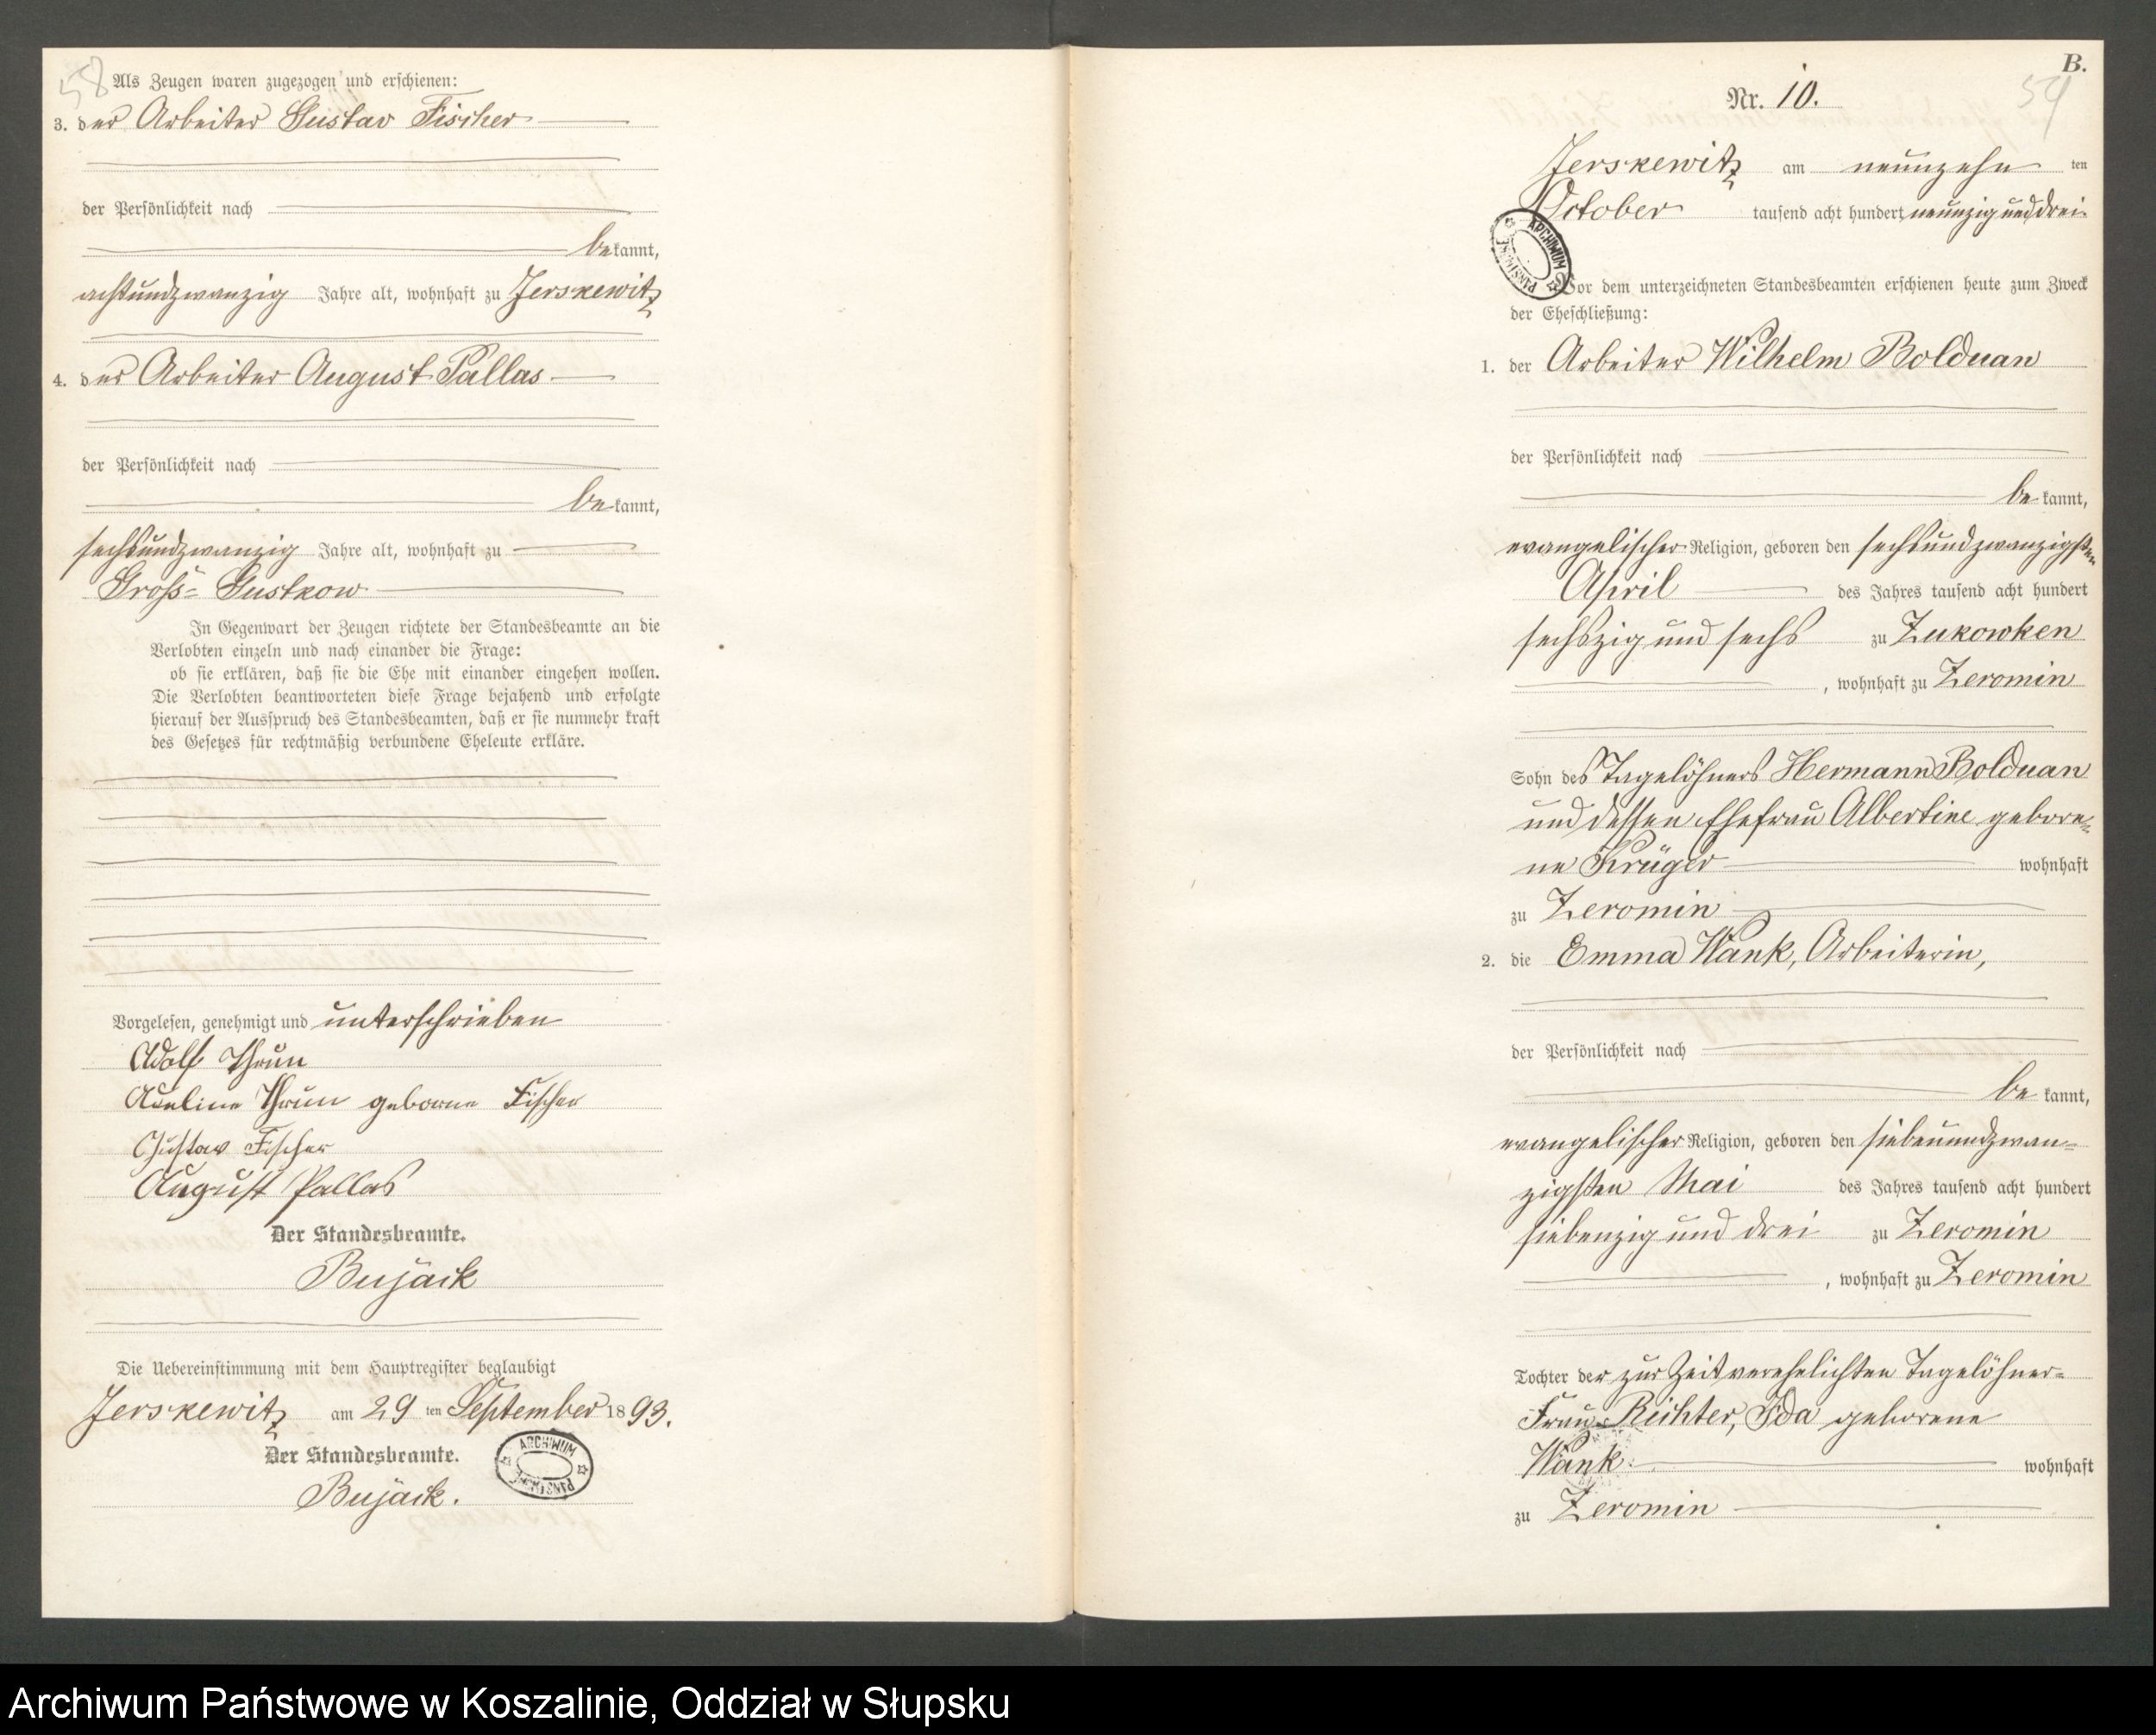 58
Als Zeugen waren zugezogen und erschienen:
3. der Arbeiter Gustav Fischer
der Persönlichkeit nach
bekannt,
achtundzwanzig Jahre alt, wohnhaft zu Jerskewitz
4. der Arbeiter August Pallas
der Persönlichkeit nach
bekannt,
sechsundzwanzig Jahre alt, wohnhaft zu
Gross= Gustkow
In Gegenwart der Zeugen richtete der Standesbeamte an die
Verlobten einzeln und nach einander die Frage:
ob sie erklären, daß sie die Ehe mit einander eingehen wollen.
Die Verlobten beantworteten diese Frage bejahend und erfolgte
hierauf der Ausspruch des Standesbeamten, daß er sie nunmehr kraft
des Gesetzes für rechtmäßig verbundene Eheleute erkläre.
Vorgelesen, genehmigt und unterschrieben
Adolf Thrun
Adeline Thrun geborne Fischer
Gustav Fischer
August Pallas
Der Standesbeamte.
Bujack
Die Uebereinstimmung mit dem Hauptregister beglaubigt
Jerskewitz am 29 ten September 1893.
Der Standesbeamte.
Bujack.
ARCHIWUM PAŃSTWOWE
B.
59
Nr. 10.
Jerskewitz am neunzehn ten
October tausend acht hundert neunzig und drei
ARCHIWUM PAŃSTWOWE
Vor dem unterzeichneten Standesbeamten erschienen heute zum Zweck
der Eheschließung:
1. der Arbeiter Wilhelm Bolduan
der Persönlichkeit nach
be kannt,
evangelischer Religion, geboren den sechsundzwanzigsten
April des Jahres tausend acht hundert
sechszig und sechs zu Zukowken
, wohnhaft zu Zeromin
Sohn des Tagelöhners Hermann Bolduan
und dessen Ehefrau Albertine gebore=
ne Krüger wohnhaft
zu Zeromin
2. die Emma Wank, Arbeiterin,
der Persönlichkeit nach
be kannt,
evangelischer Religion, geboren den siebenundzwan=
zigsten Mai des Jahres tausend acht hundert
siebenzig und drei zu Zeromin
, wohnhaft zu Zeromin
Tochter der zur Zeit verehelichten Tagelöhner=
Frau Richter, Ida geborene
Wank wohnhaft
zu Zeromin
Archiwum Państwowe w Koszalinie, Oddział w Słupsku